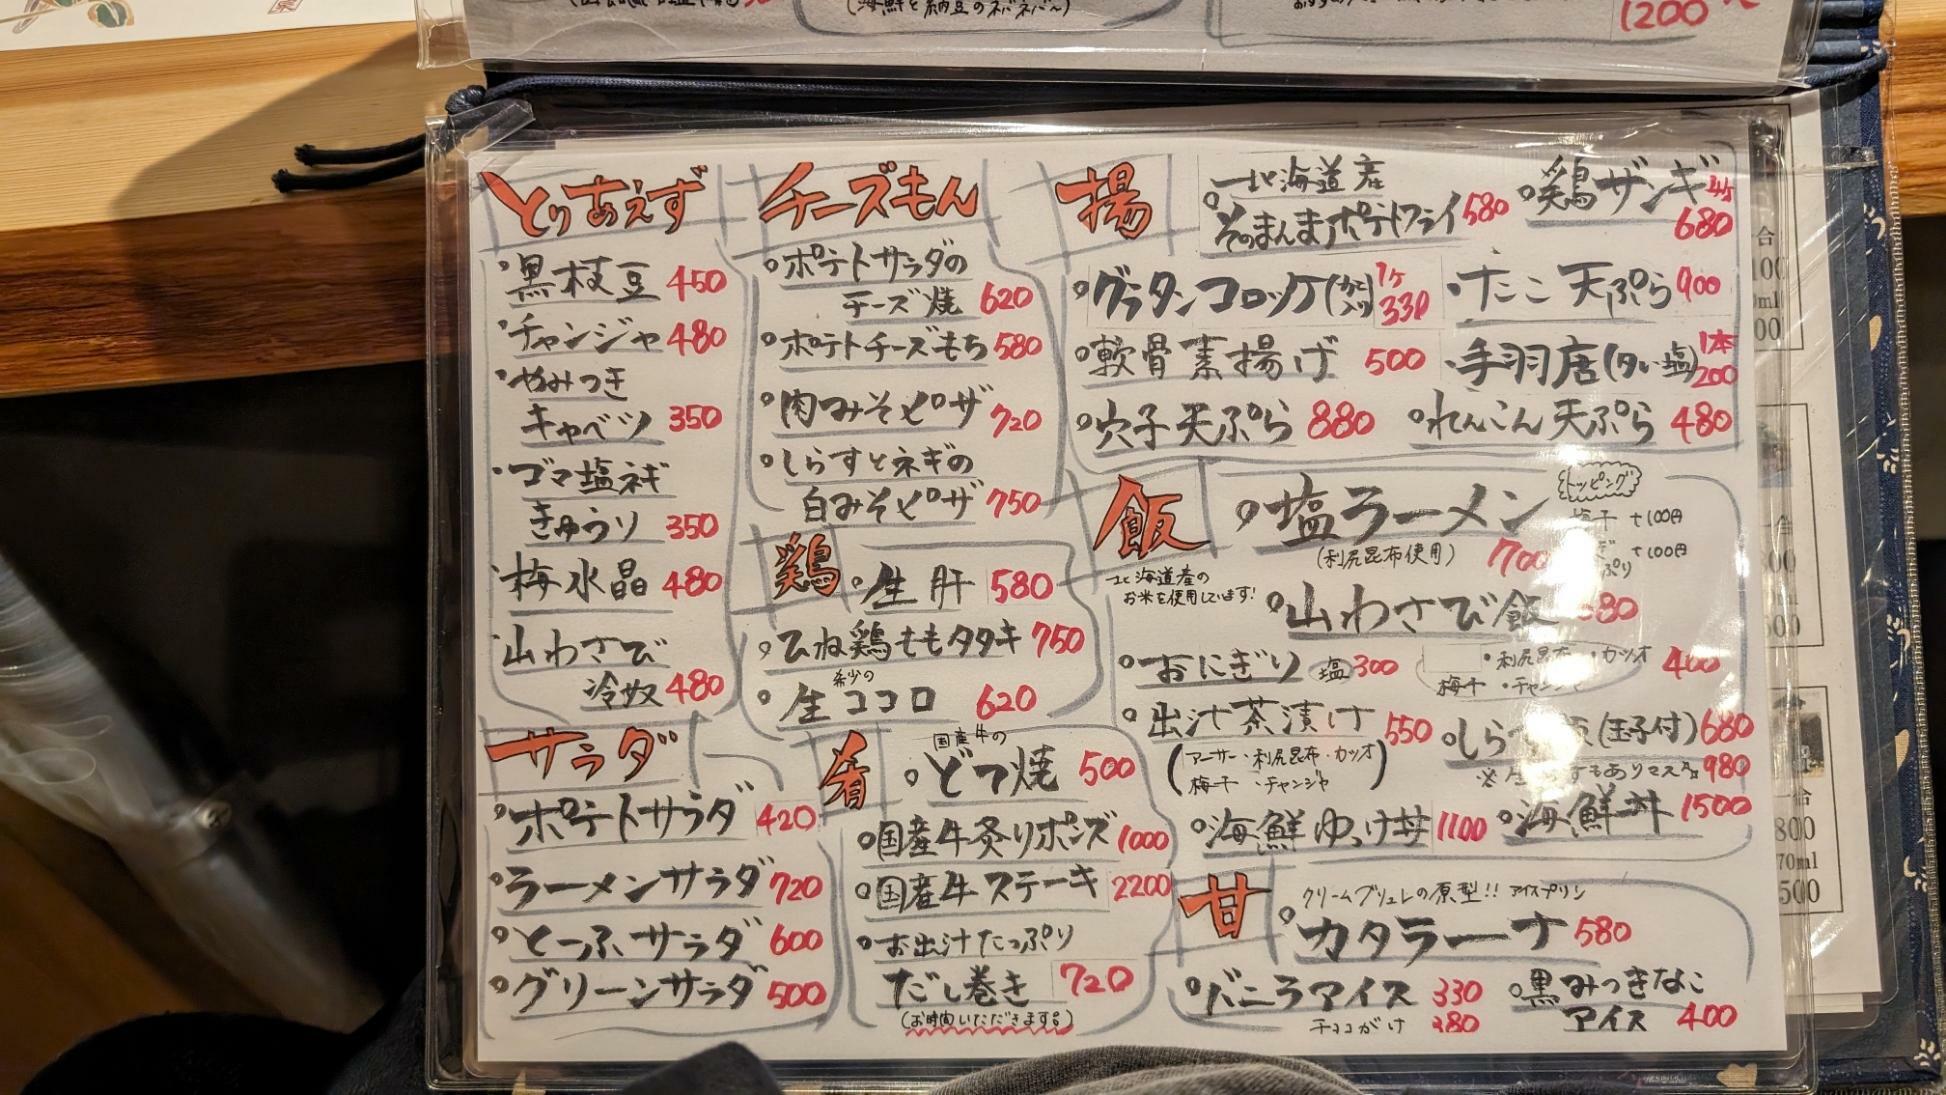 (海鮮と納豆のネバネバ〜)
1200
とりあえず
黒枝豆 450
チャンジャ 480
やみつき
キャベツ 350
ゴマ塩ネギ
きゅうり 350
梅水晶 480
山わさび
冷奴 480
サラダ
ポテトサラダ 420
ラーメンサラダ 720
とーふサラダ 600
グリーンサラダ 500
チーズもん
ポテトサラダの
チーズ焼 620
ポテトチーズもち 580
肉みそピザ 720
しらすとネギの
白みそピザ 750
鶏
生肝 580
ひね鶏ももタタキ 750
希少の
生ココロ 620
肴
国産牛の
どて焼 500
国産牛炙りポンズ 1000
国産牛ステーキ 2200
お出汁たっぷり
だし巻き 720
(お時間いただきます。)
揚
北海道産
そのまんまポテトフライ 580
鶏ザンギ 4ケ
680
グラタンコロッケ(かに入り) 1ケ
330
たこ天ぷら 900
軟骨素揚げ 500
手羽唐(タレ・塩) 1本
200
穴子天ぷら 880
れんこん天ぷら 480
飯
北海道産の
お米を使用しています!
塩ラーメン
(利尻昆布使用) 700
トッピング
梅干 +100円
+100円
山わさび飯 80
おにぎり 塩 300
・利尻昆布 ・カツオ
梅干 ・チャンジャ 400
出汁茶漬け 550
(アーサー・利尻昆布・カツオ
梅干 ・チャンジャ)
しらす (玉子付) 680
もありマス 980
海鮮ゆっけ丼 1100
海鮮丼 1500
甘
クリームブリュレの原型!! アイスプリン
カタラーナ 580
バニラアイス 330
チョコがけ 380
黒みつきなこ
アイス 400